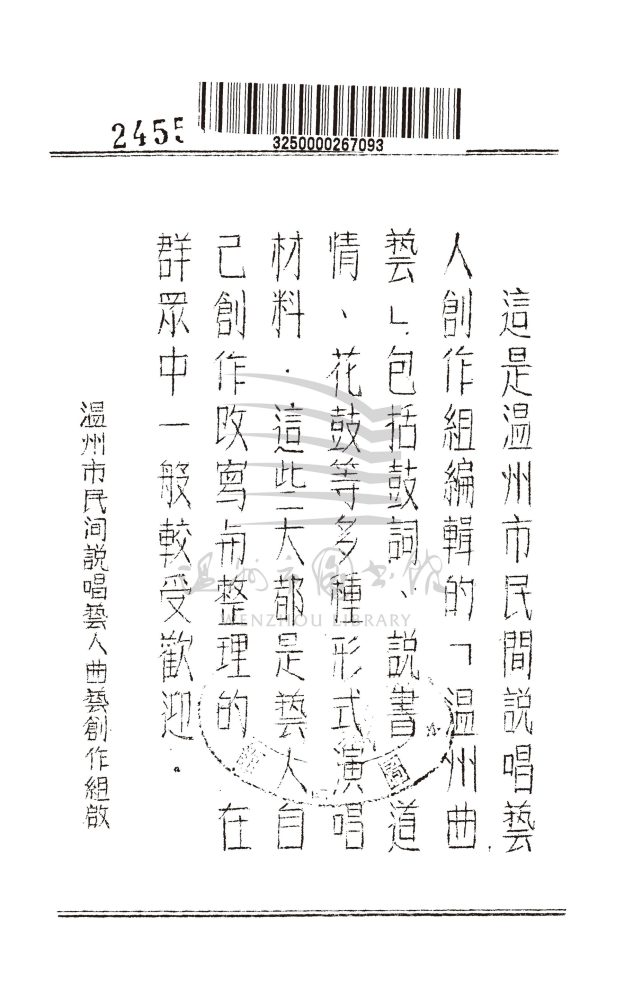 2455
3250000267093
這是温州市民間説唱藝
人創作組編輯的「温州曲
藝」.包括鼓詞、説書、道
情、花鼓等多種形式演唱
材料.這些大都是藝人自
己創作改寫與整理的.在
群眾中一般較受歡迎.。
温州市民间説唱藝人曲藝創作組啟
温州市圖書館
WENZHOU LIBRARY